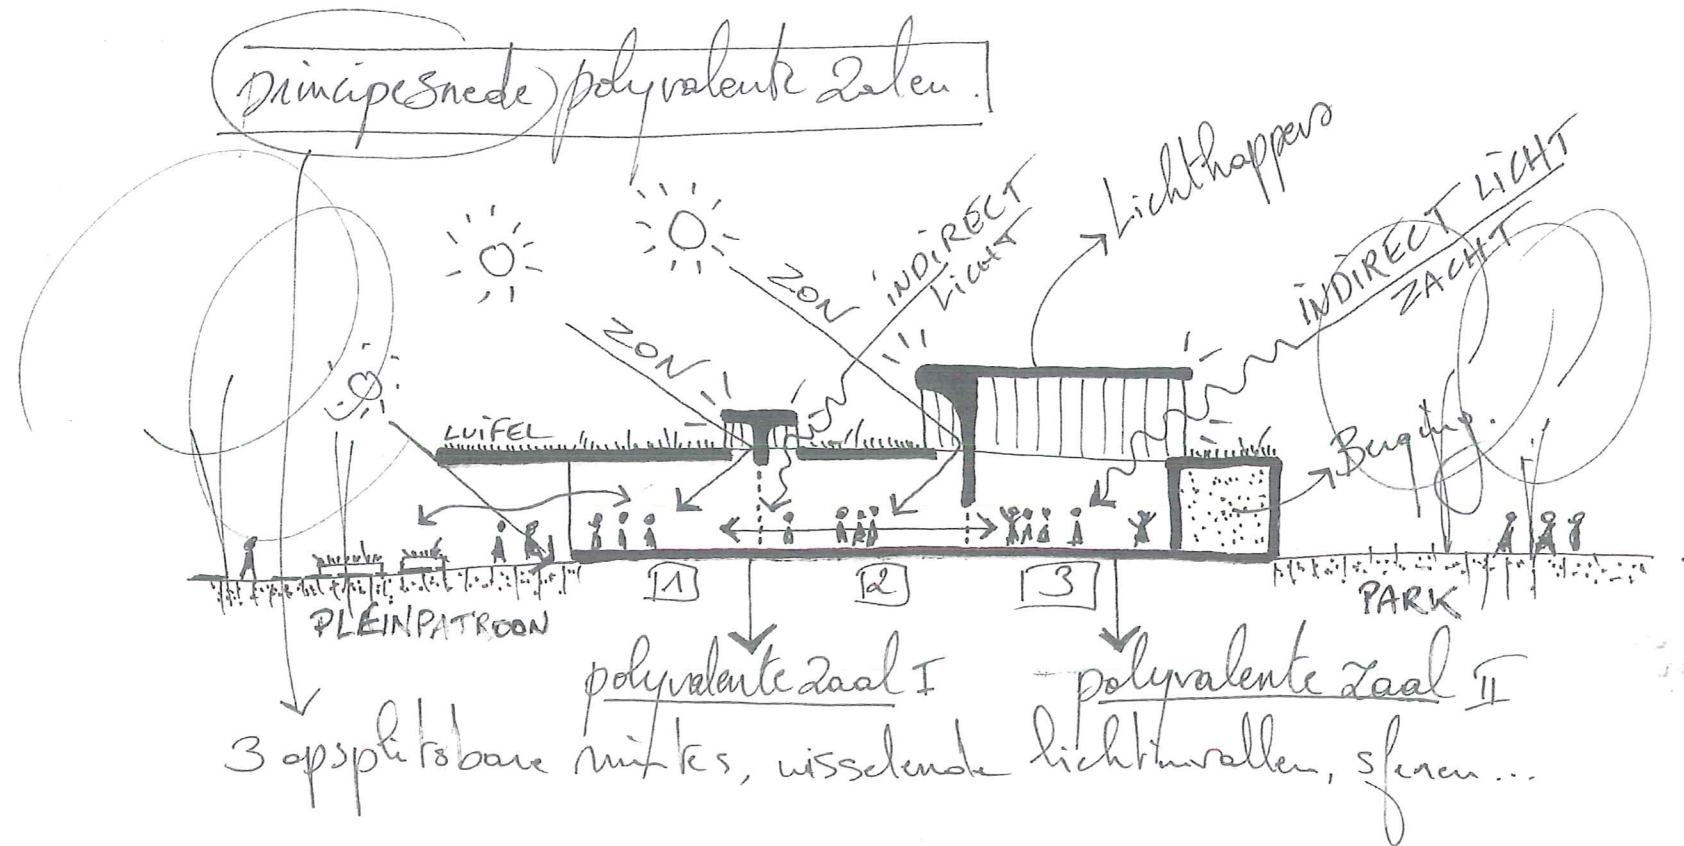 principesnede polyvalente zalen.
Lichthappers
INDIRECT
LICHT
INDIRECT LICHT
ZACHT
ZON
ZON
LUIFEL
Berging.
1
2
3
PLEINPATROON
PARK
polyvalente zaal I
polyvalente zaal II
3 opsplitsbare ruimtes, wisselende lichtinvallen, sferen...